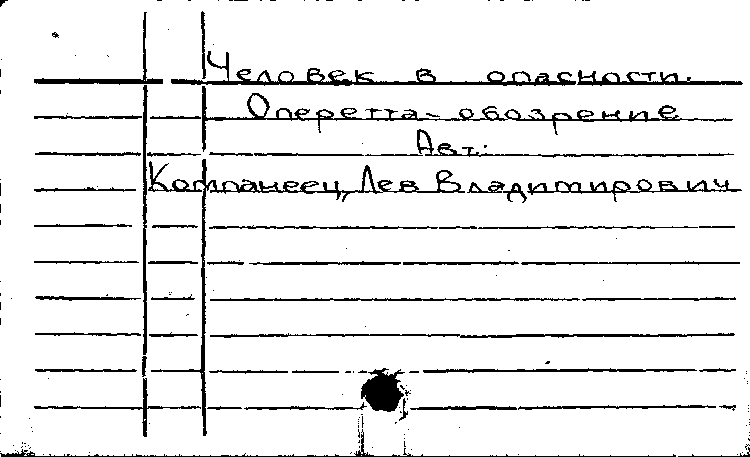 Человек в опасности.
Оперетта-обозрение
Авт.:
Компанеец, Лев Владимирович